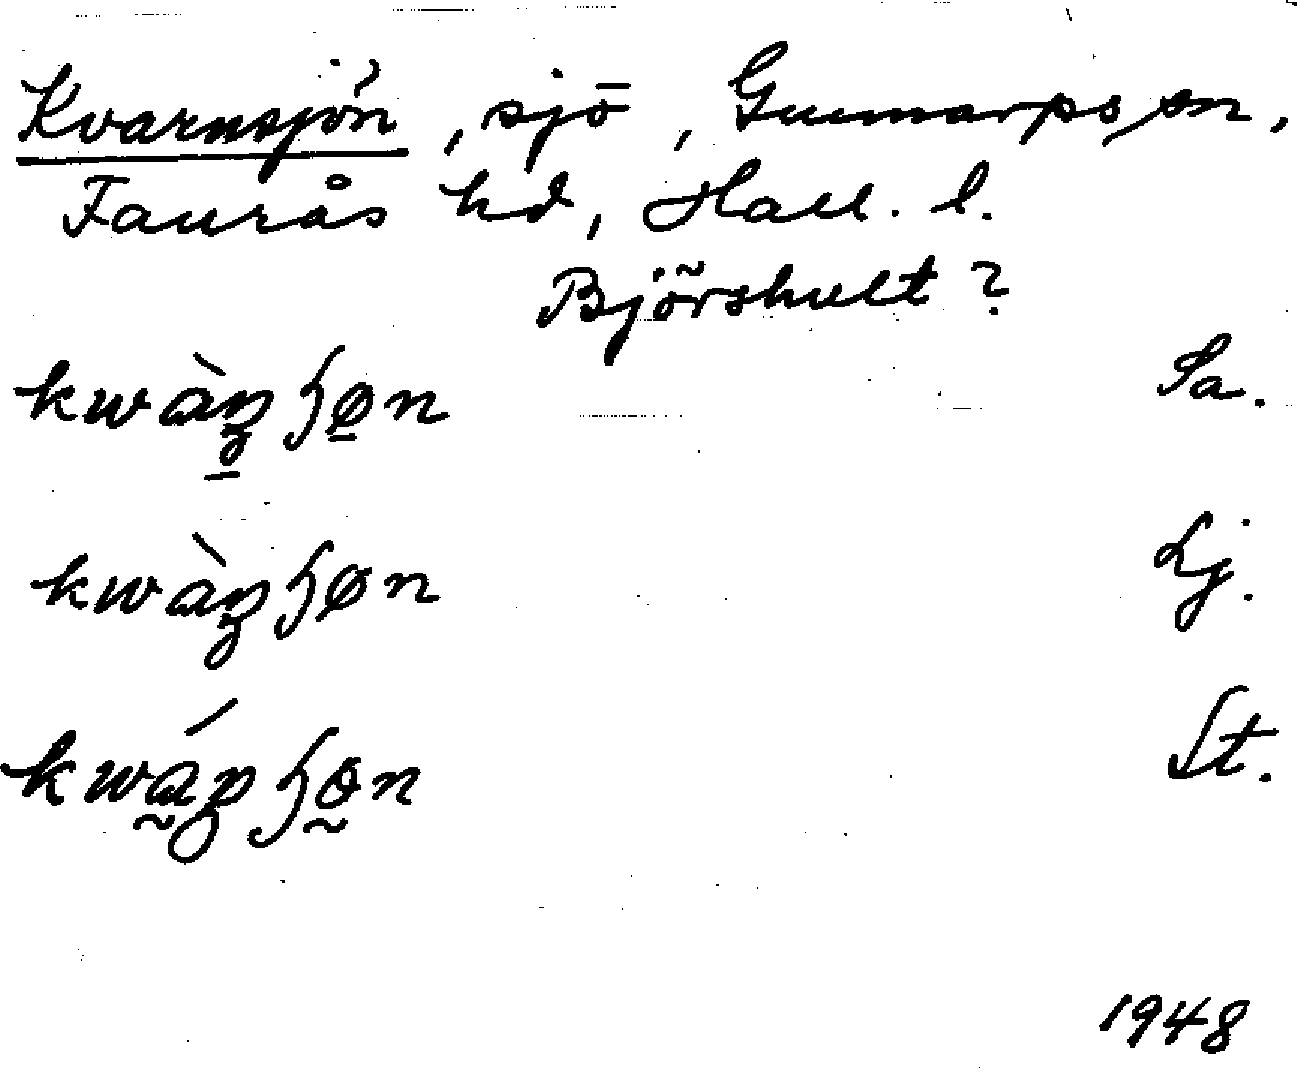 Kvarnsjön, sjö, Gunnarps sn,
Faurås hd, Hall. l.
Björshult?
kwàꞑɧøn Sa.
kwàꞑɧøn Lj.
kwáꞑɧøn St.
1948